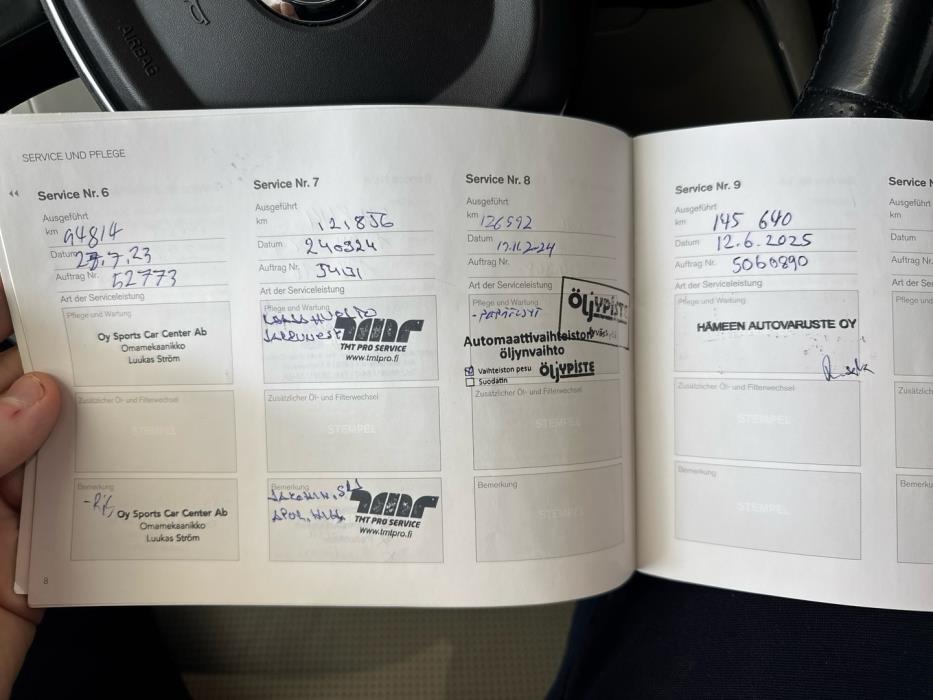 AIRBAG
SERVICE UND PFLEGE
Service Nr. 6
Ausgeführt
km 94814
Datum 27.7.23
Auftrag Nr. 52773
Art der Serviceleistung
Pflege und Wartung
Oy Sports Car Center Ab
Omamekaanikko
Luukas Ström
Zusätzlicher Öl- und Filterwechsel
STEMPEL
Bemerkung
Oy Sports Car Center Ab
Omamekaanikko
Luukas Ström
8
Service Nr. 7
Ausgeführt
km 12,856
Datum 240824
Auftrag Nr.
Art der Serviceleistung
Pflege und Wartung
TMT PRO SERVICE
www.tmtpro.fi
Zusätzlicher Öl- und Filterwechsel
STEMPEL
Bemerkung
TMT PRO SERVICE
www.tmtpro.fi
Service Nr. 8
Ausgeführt
km 126592
Datum
Auftrag Nr.
Art der Serviceleistung
Pflege und Wartung
ÖLJYPISTE
Automaattivaihteiston
öljynvaihto
Vaihteiston pesu
Suodatin
ÖLJYPISTE
Zusätzlicher Öl- und Filterwechsel
STEMPEL
Bemerkung
STEMPEL
Service Nr. 9
Ausgeführt
km 145 640
Datum 12.6.2025
Auftrag Nr. 5060890
Art der Serviceleistung
Pflege und Wartung
HÄMEEN AUTOVARUSTE OY
Zusätzlicher Öl- und Filterwechsel
STEMPEL
Bemerkung
STEMPEL
Service N
Ausgeführt
km
Datum
Auftrag Nr.
Art der Serv
Pflege und
Zusätzlich
Bemerku